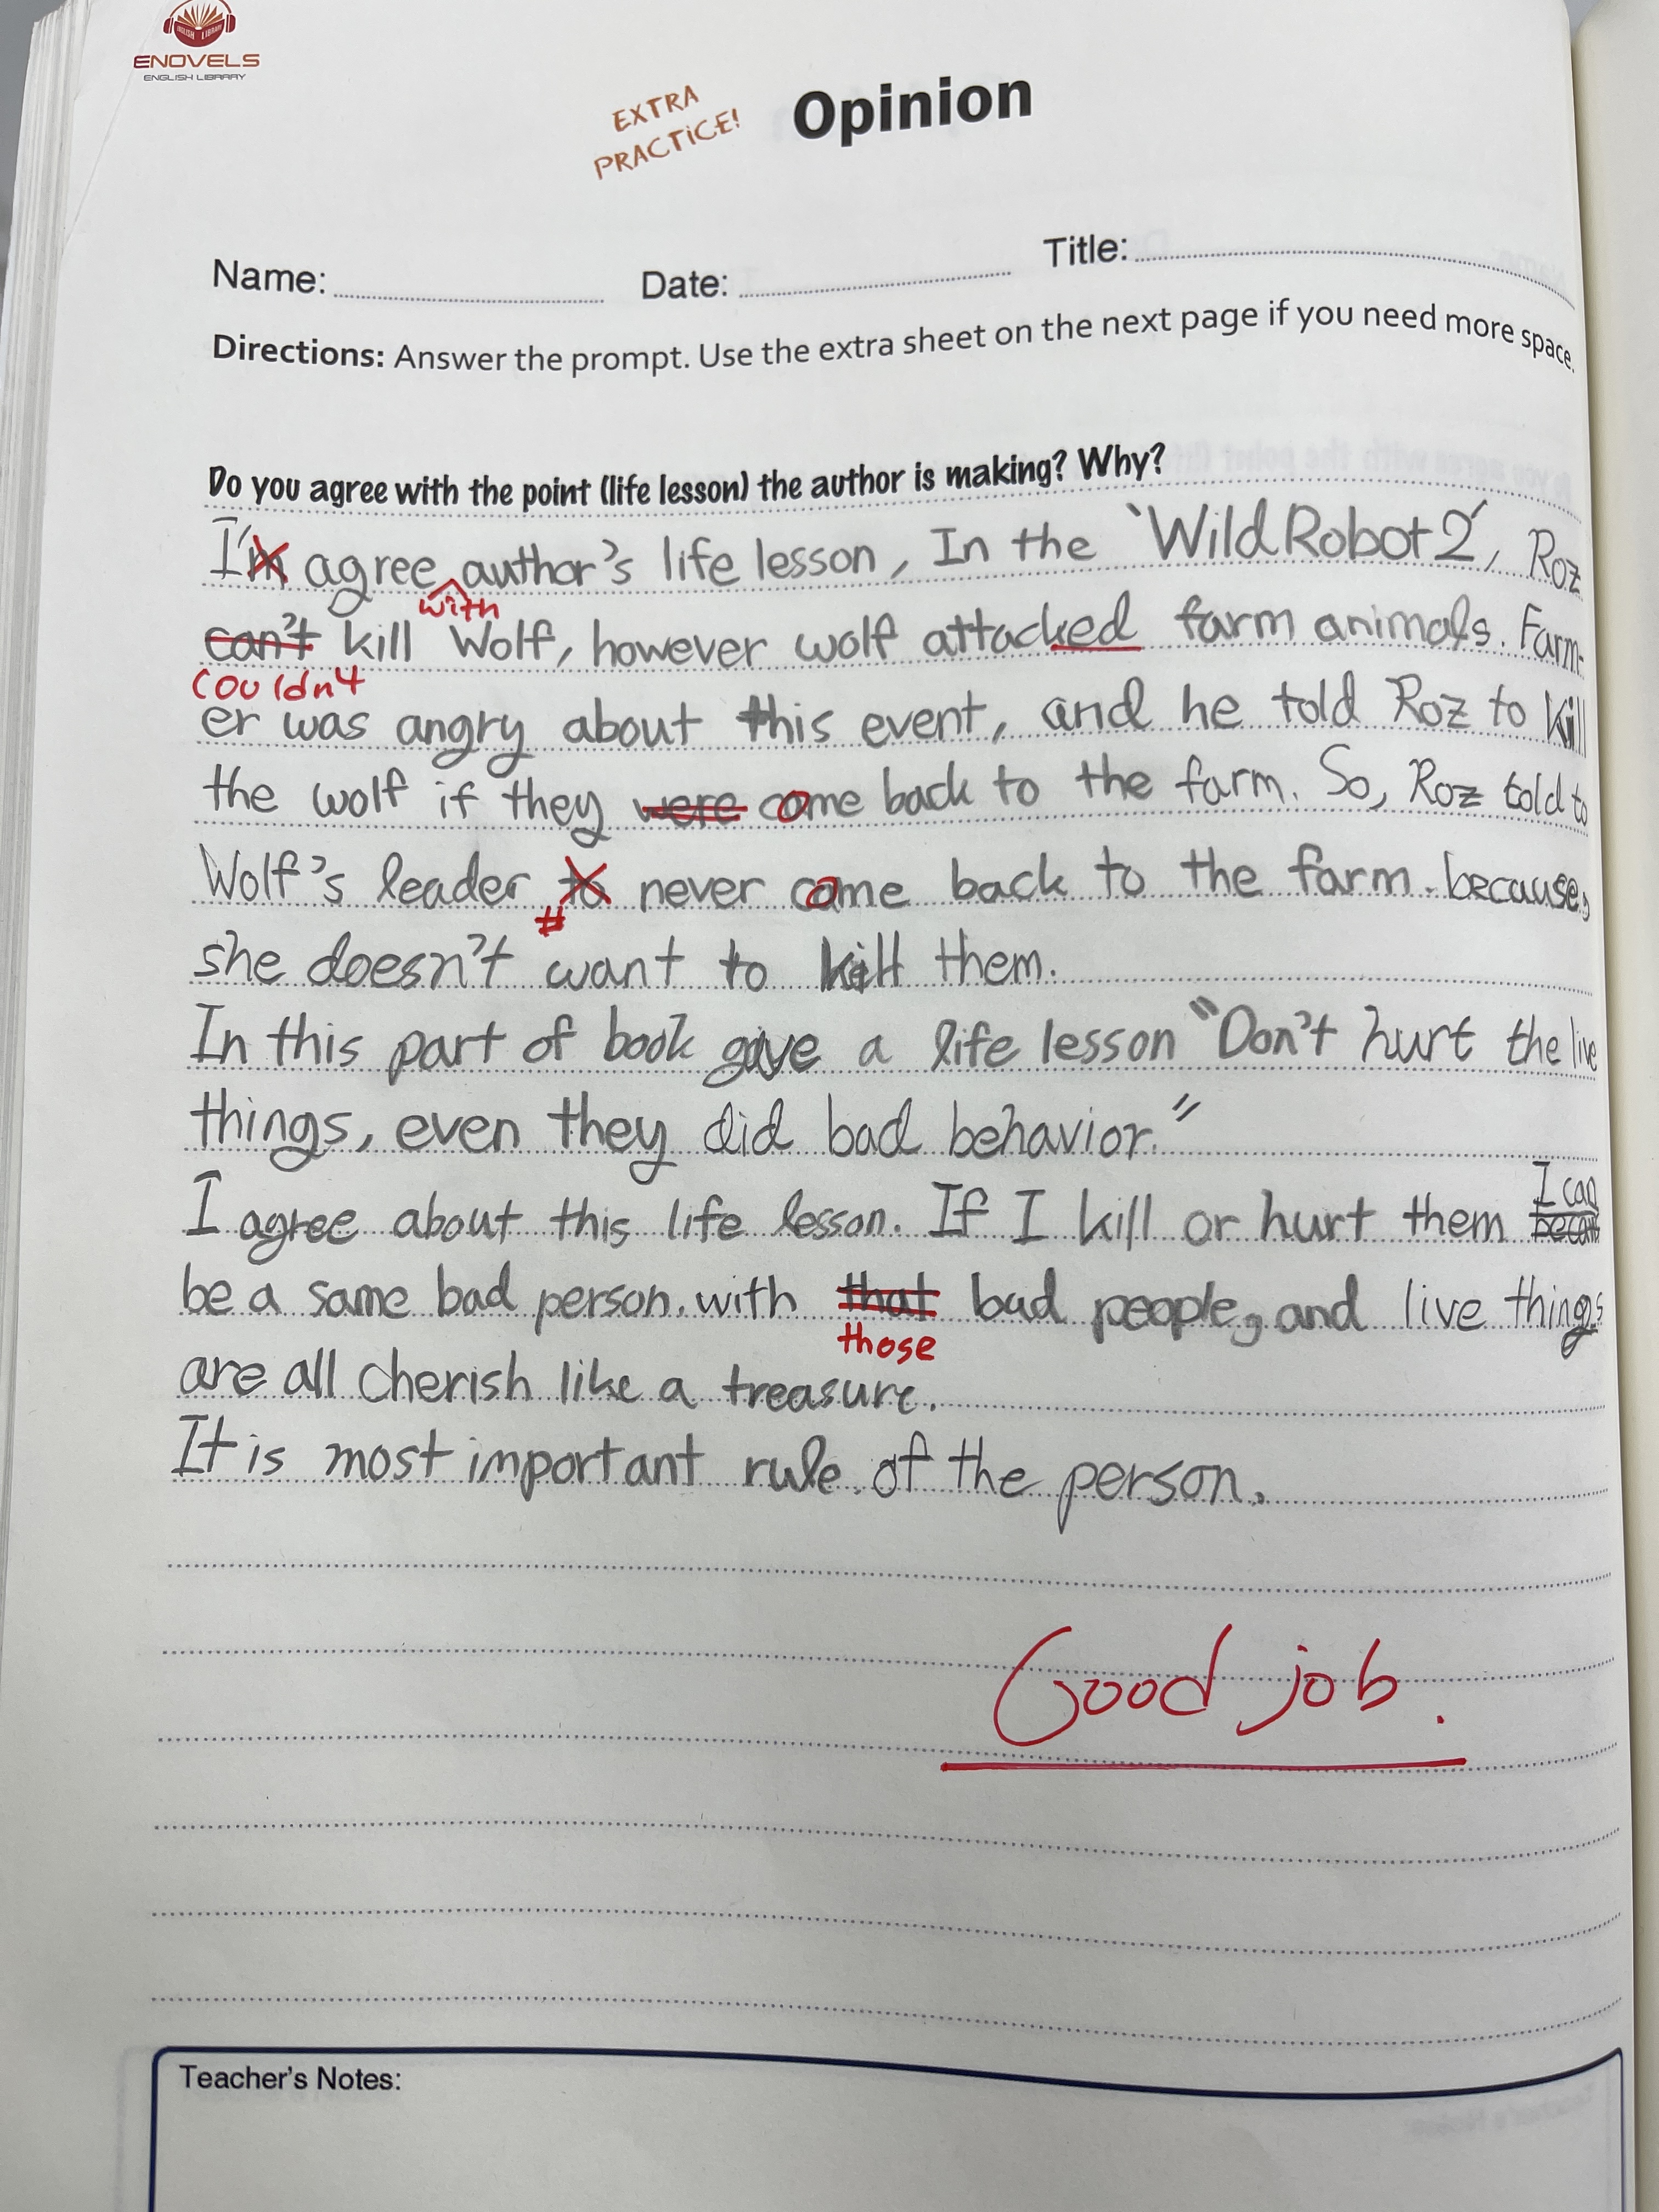 ENGLISH LIBRARY
ENOVELS
ENGLISH LIBRARY
EXTRA
PRACTICE!
Opinion
Name:
Date:
Title:
Directions: Answer the prompt. Use the extra sheet on the next page if you need more space.
Do you agree with the point (life lesson) the author is making? Why?
I'm agree author's life lesson, In the 'Wild Robot 2', Roz
with
can't kill Wolf, however wolf attacked farm animals. Farm-
couldn't
er was angry about this event, and he told Roz to kill
the wolf if they were come back to the farm. So, Roz told to
Wolf's leader to never come back to the farm. because,
she doesn't want to kill them.
In this part of book gave a life lesson "Don't hurt the live
things, even they did bad behavior."
I can
I agree about this life lesson. If I kill or hurt them
be a same bad person. with that bad people, and live things
those
are all cherish like a treasure.
It is most important rule of the person.
Good job.
Teacher's Notes: